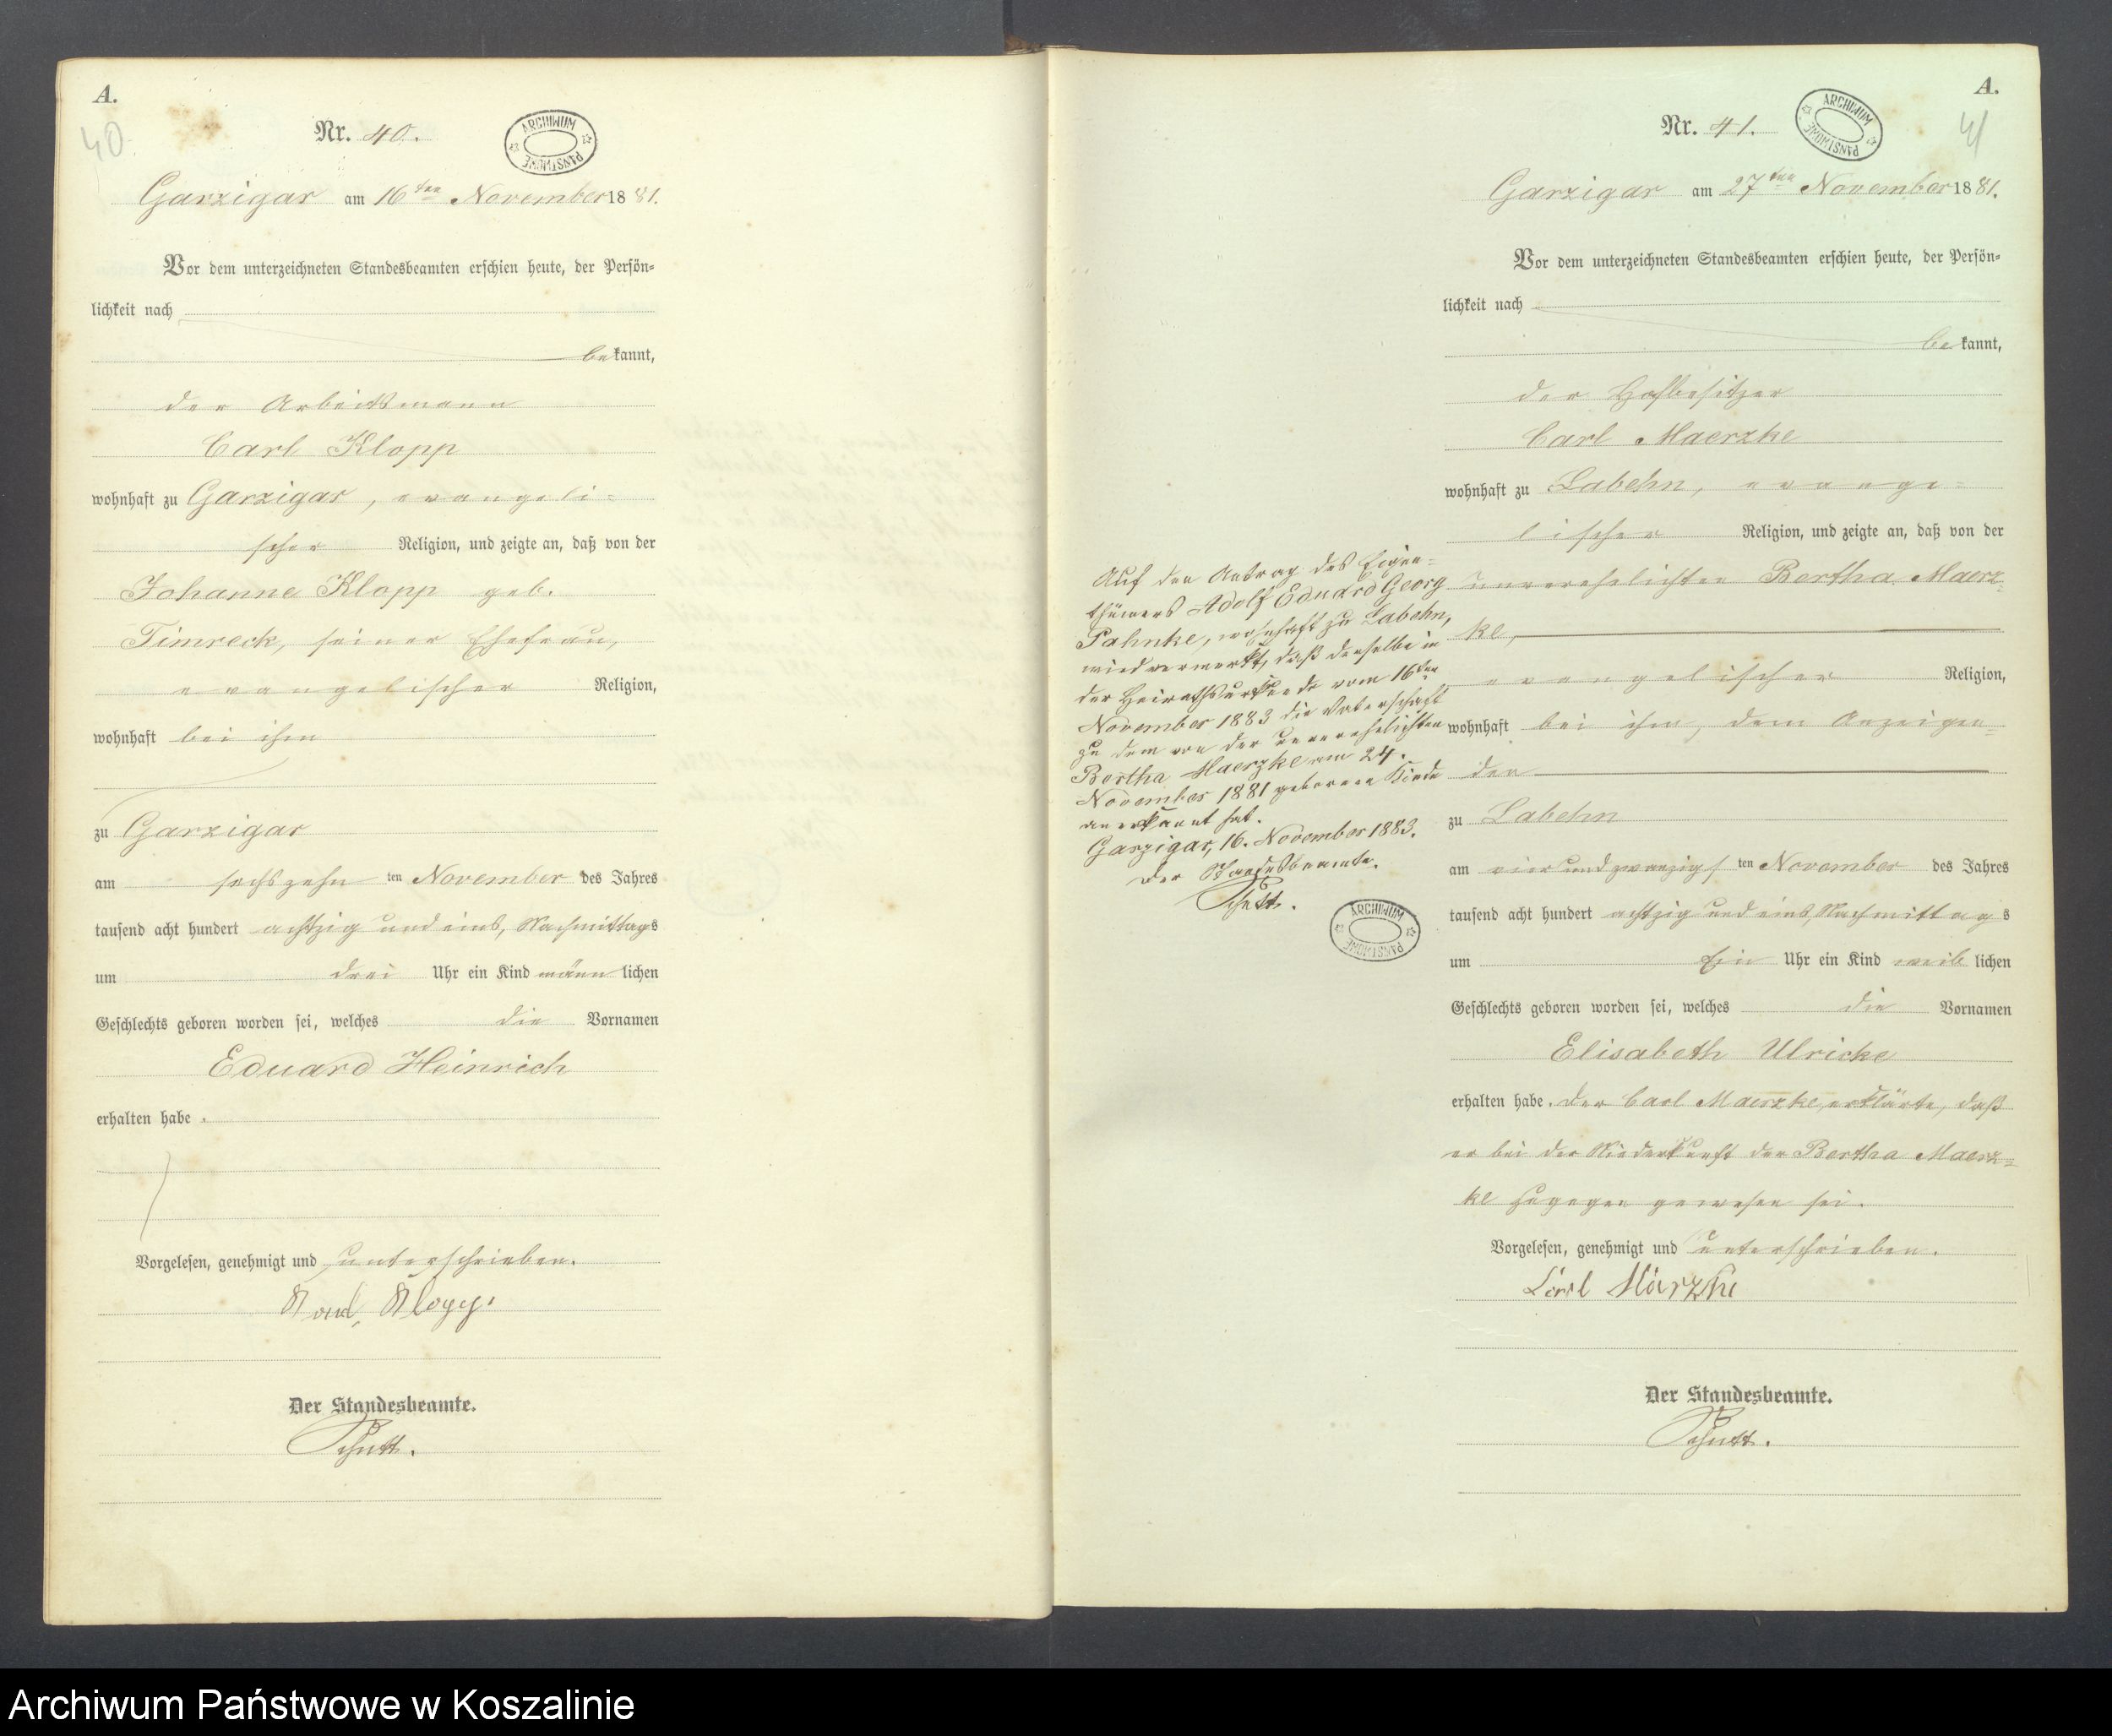 A.
40
Nr. 40.
ARCHIWUM PAŃSTWOWE
Garzigar am 16ten November 1881.
Vor dem unterzeichneten Standesbeamten erschien heute, der Persön=
lichkeit nach
bekannt,
der Arbeitsmann
Carl Klopp
wohnhaft zu Garzigar, evangeli=
scher Religion, und zeigte an, daß von der
Johanne Klopp geb.
Timreck, seiner Ehefrau,
evangelischer Religion,
wohnhaft bei ihm
zu Garzigar
am sechszehn ten November des Jahres
tausend acht hundert achtzig und eins, Nachmittags
um drei Uhr ein Kind männlichen
Geschlechts geboren worden sei, welches die Vornamen
Eduard Heinrich
erhalten habe.
Vorgelesen, genehmigt und unterschrieben.
Karl Klopp.
Der Standesbeamte.
Schutt.
A.
41
Nr. 41.
ARCHIWUM PAŃSTWOWE
Garzigar am 27ten November 1881.
Vor dem unterzeichneten Standesbeamten erschien heute, der Persön=
lichkeit nach
bekannt,
der Hofbesitzer
Carl Maerzke
wohnhaft zu Labehn, evange=
lischer Religion, und zeigte an, daß von der
unverehelichten Bertha Maerz=
ke,
evangelischer Religion,
wohnhaft bei ihm, dem Anzeigen=
den
zu Labehn
am vier und zwanzigs ten November des Jahres
tausend acht hundert achtzig und eins, Nachmittags
um Ein Uhr ein Kind weiblichen
Geschlechts geboren worden sei, welches die Vornamen
Elisabeth Ulricke
erhalten habe. Der Carl Maerzke erklärte, daß
er bei der Niederkunft der Bertha Maerz=
ke zugegen gewesen sei.
Vorgelesen, genehmigt und unterschrieben.
Carl Märzke
Der Standesbeamte.
Schutt.
Auf den Antrag des Eigen=
thümers Adolf Eduard Georg
Pahnke, wohnhaft zu Labehn,
wird vermerkt, daß derselbe in
der Heirathsurkunde vom 16ten
November 1883 die Vaterschaft
zu dem von der unverehelichten
Bertha Maerzke am 24.
November 1881 geborenen Kinde
anerkannt hat.
Garzigar, 16. November 1883.
Der Standesbeamte.
Schutt.
ARCHIWUM PAŃSTWOWE
Archiwum Państwowe w Koszalinie